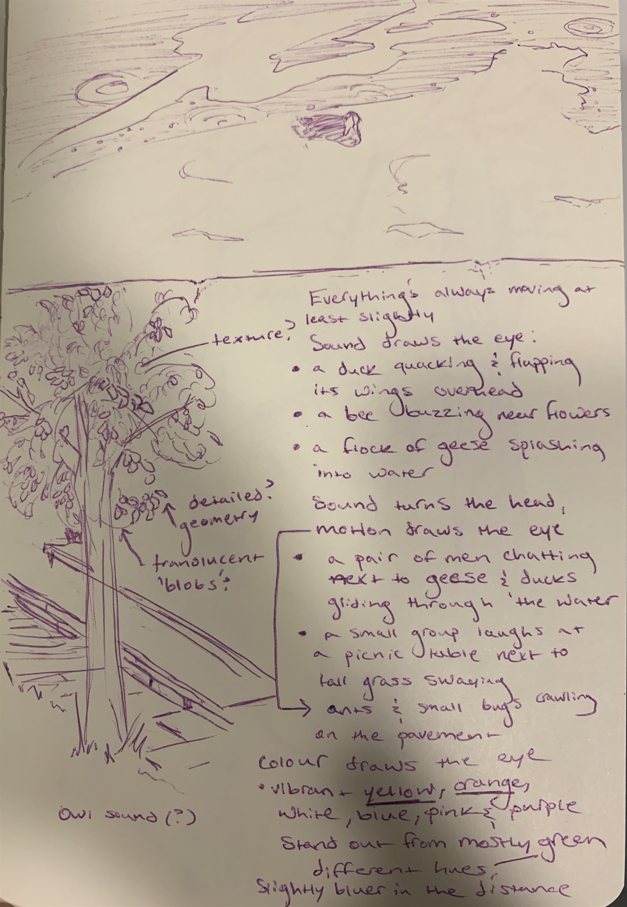 Everything's always moving at
least slightly
texture?
Sound draws the eye:
• a duck quacking & flapping
its wings overhead
• a bee buzzing near flowers
• a flock of geese splashing
into water
detailed?
geometry
translucent
'blobs'?
Sound turns the head,
motion draws the eye
• a pair of men chatting
next to geese & ducks
gliding through the water
• a small group laughs at
a picnic table next to
tall grass swaying
ants & small bugs crawling
on the pavement
Colour draws the eye
• vibrant yellow, orange,
white, blue, pink & purple
Stand out from mostly green
different hues,
Slightly bluer in the distance
Owl sound (?)